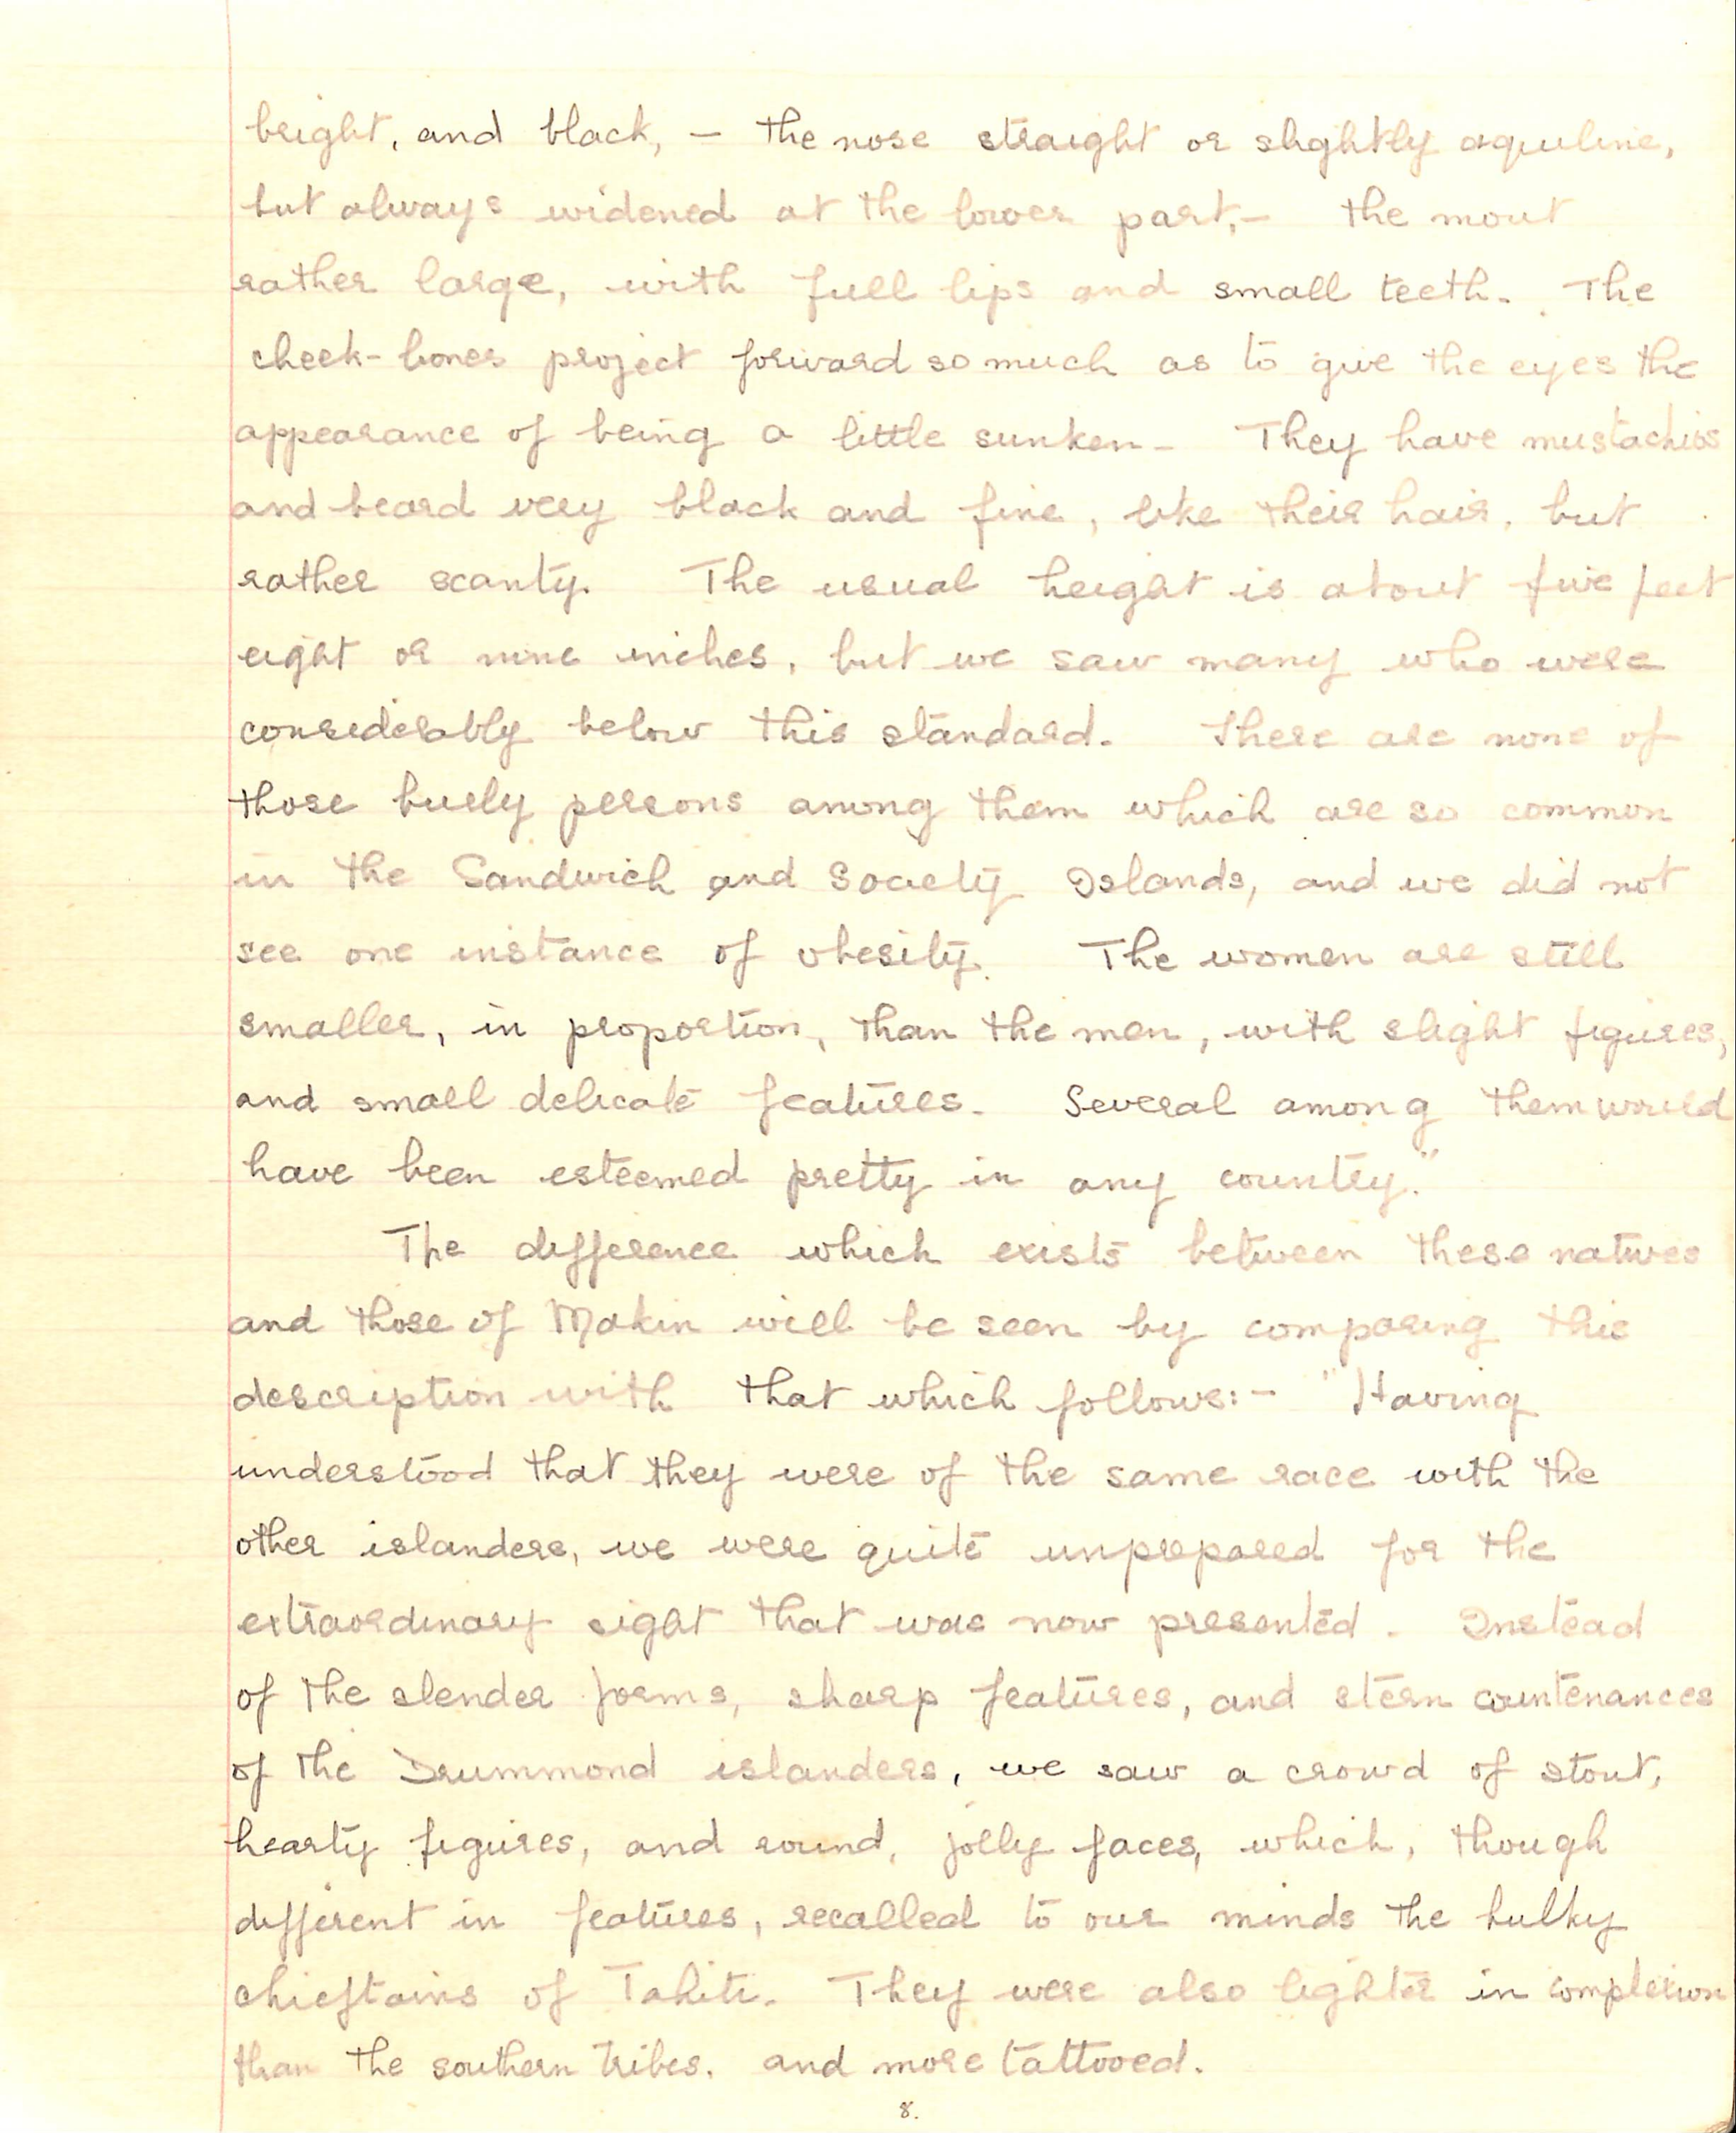 bright, and black, — the nose straight or slightly aquiline,
but always widened at the lower part,— the mout
rather large, with full lips and small teeth. The
cheek-bones project forward so much as to give the eyes the
appearance of being a little sunken— They have mustachios
and beard very black and fine, like their hair, but
rather scanty. The usual height is about five feet
eight or nine inches, but we saw many who were
considerably below this standard. There are none of
those burly persons among them which are so common
in the Sandwich and Society Islands, and we did not
see one instance of obesity. The women are still
smaller, in proportion, than the men, with slight figures,
and small delicate features. Several among them would
have been esteemed pretty in any country."
The difference which exists between these natives
and those of Makin will be seen by comparing this
description with that which follows:— "Having
understood that they were of the same race with the
other islanders, we were quite unprepared for the
extraordinary sight that was now presented. Instead
of the slender forms, sharp features, and stern countenances
of the Drummond islanders, we saw a crowd of stout,
hearty figures, and round, jolly faces, which, though
different in features, recalled to our minds the hulky
chieftains of Tahiti. They were also lighter in complexion
than the southern tribes, and more tattooed.
8.